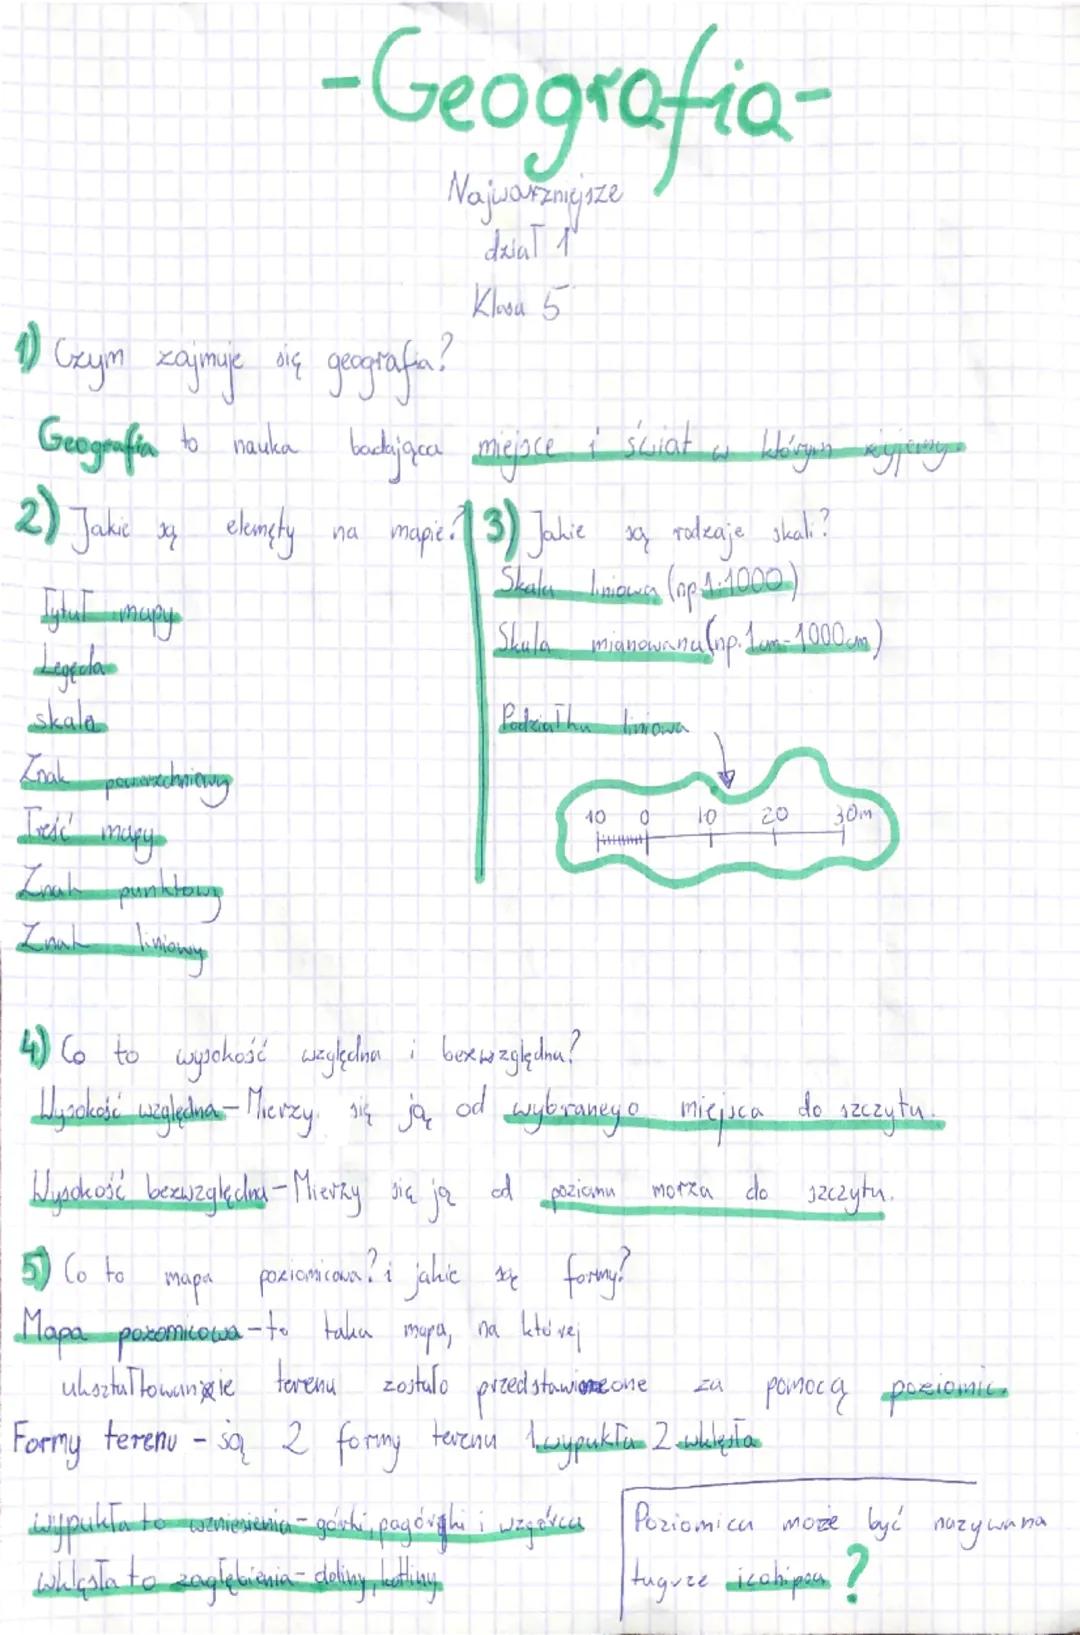 -Geografia-
Najwarzniejsze
dział 1
Klasa 5
1) Czym zajmuje się geografia?
Geografia to nauka badająca miejsce i świat w którym żyjemy.
2) Jakie są elemęty na mapie?
Tytuł mapy
Legęda
skala
Znak powierzchniowy
Treść mapy
Znak punktowy
Znak liniowy
3) Jakie są rodzaje skali?
Skala liniowa (np. 1:1000)
Skala mianowana (np. 1cm-1000cm)
Podziałka liniowa
10 0 10 20 30m
4) Co to wysokość względna i bezwzględna?
Wysokość względna - Mierzy się ją od wybranego miejsca do szczytu.
Wysokość bezwzględna - Mierzy się ją od poziomu morza do szczytu.
5) Co to mapa poziomicowa? i jakie są formy?
Mapa pozomicowa - to taka mapa, na której
ukształtowanie terenu zostało przedstawione za pomocą poziomic.
Formy terenu - są 2 formy terenu 1.wypukła 2.wklęsła
wypukła to wzniesienia - górki, pagórki i wzgórca
wklęsła to zagłębienia - doliny, kotliny
Poziomica może być nazywana
tugrze ?